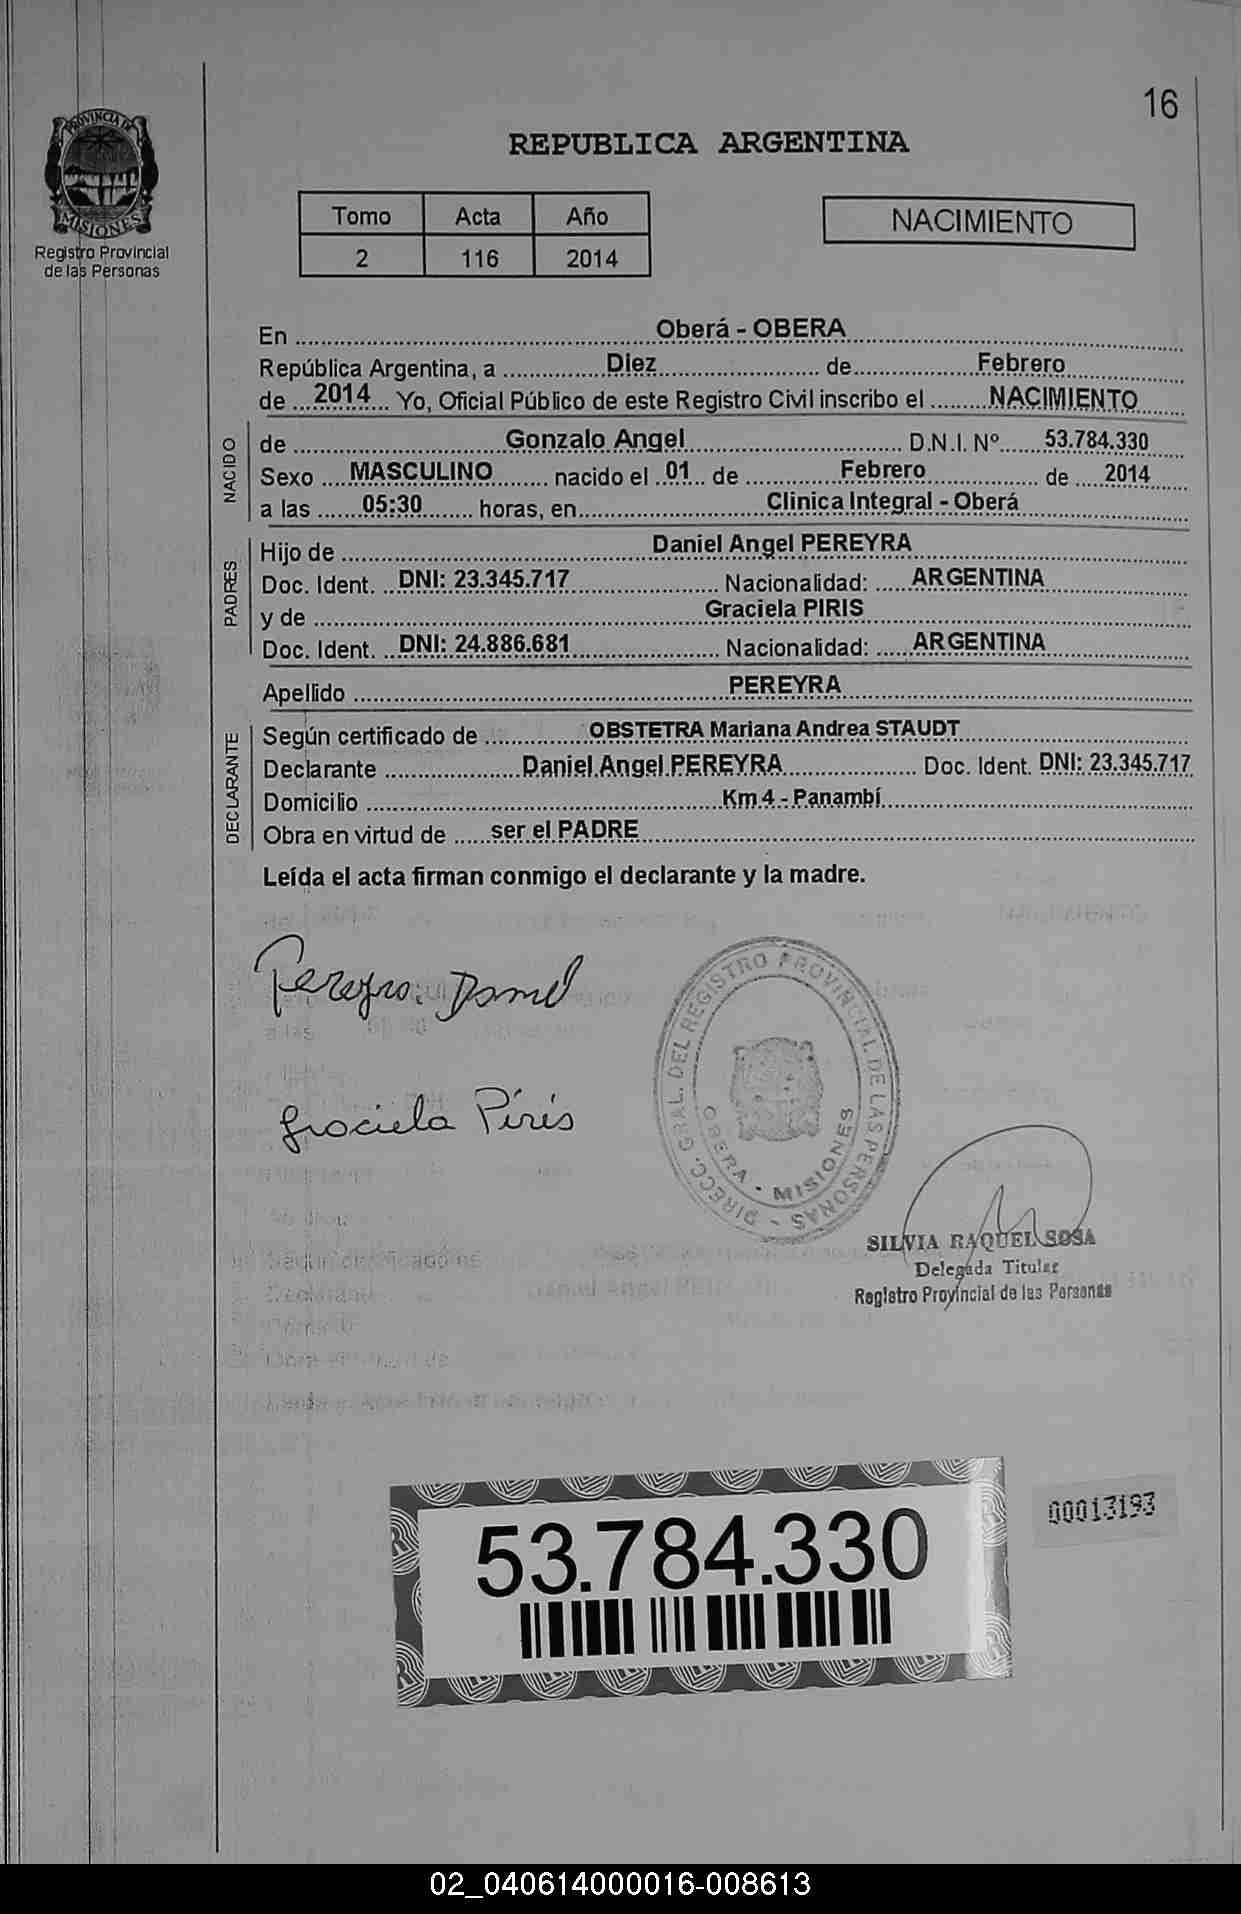 16
PROVINCIA DE
MISIONES
Registro Provincial
de las Personas
REPUBLICA ARGENTINA
Tomo Acta Año
2 116 2014
NACIMIENTO
En Oberá - OBERA
República Argentina, a Diez de Febrero
de 2014 Yo, Oficial Público de este Registro Civil inscribo el NACIMIENTO
NACIDO
de Gonzalo Angel D.N.I. Nº 53.784.330
Sexo MASCULINO nacido el 01 de Febrero de 2014
a las 05:30 horas, en Clinica Integral - Oberá
PADRES
Hijo de Daniel Angel PEREYRA
Doc. Ident. DNI: 23.345.717 Nacionalidad: ARGENTINA
y de Graciela PIRIS
Doc. Ident. DNI: 24.886.681 Nacionalidad: ARGENTINA
Apellido PEREYRA
DECLARANTE
Según certificado de OBSTETRA Mariana Andrea STAUDT
Declarante Daniel Angel PEREYRA Doc. Ident. DNI: 23.345.717
Domicilio Km 4 - Panambí
Obra en virtud de ser el PADRE
Leída el acta firman conmigo el declarante y la madre.
Pereyra. Daniel
Graciela Piris
DIRECC. GRAL. DEL REGISTRO PROVINCIAL DE LAS PERSONAS -
OBERA - MISIONES
SILVIA RAQUEL SOSA
Delegada Titular
Registro Provincial de las Personas
53.784.330
00013193
02_040614000016-008613